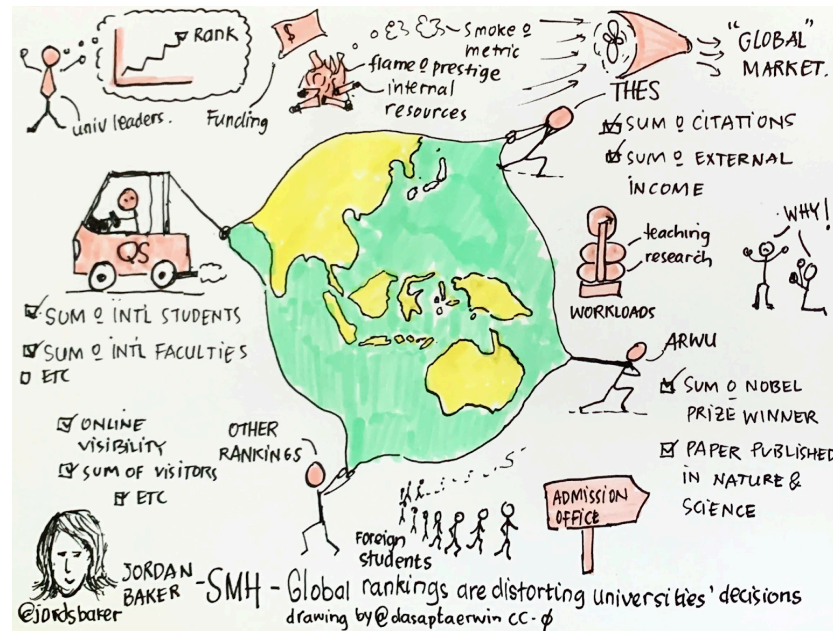 RANK
univ leaders.
Funding
$
smoke o metric
flame o prestige
internal
resources
"GLOBAL"
MARKET.
THES
SUM o CITATIONS
SUM o EXTERNAL
INCOME
QS
SUM o INTL STUDENTS
SUM o INTL FACULTIES
ETC
teaching
research
WORKLOADS
WHY!
ARWU
SUM o NOBEL
PRIZE WINNER
PAPER PUBLISHED
IN NATURE &
SCIENCE
ONLINE
VISIBILITY
SUM OF VISITORS
ETC
OTHER
RANKINGS
Foreign
students
ADMISSION
OFFICE
@jordsbaker
JORDAN
BAKER
-SMH - Global rankings are distorting universities' decisions
drawing by @dasaptaerwin CC-0